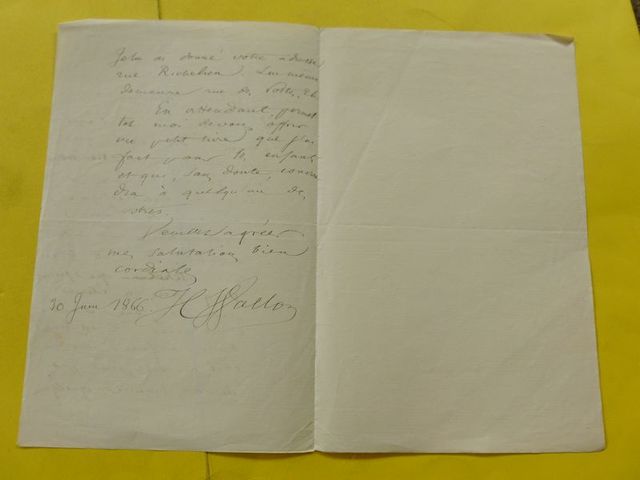 Je lui ai donné votre adresse
rue Richelieu. Lui même
demeure rue de
En attendant, permet
tez moi de vous offrir
un petit livre que j'ai
fait pour les enfants
et qui, sans doute, convien
dra à quelqu'un des
vôtres.
Veuillez agréer
mes salutations bien
cordiales
30 Juin 1866. H Wallon